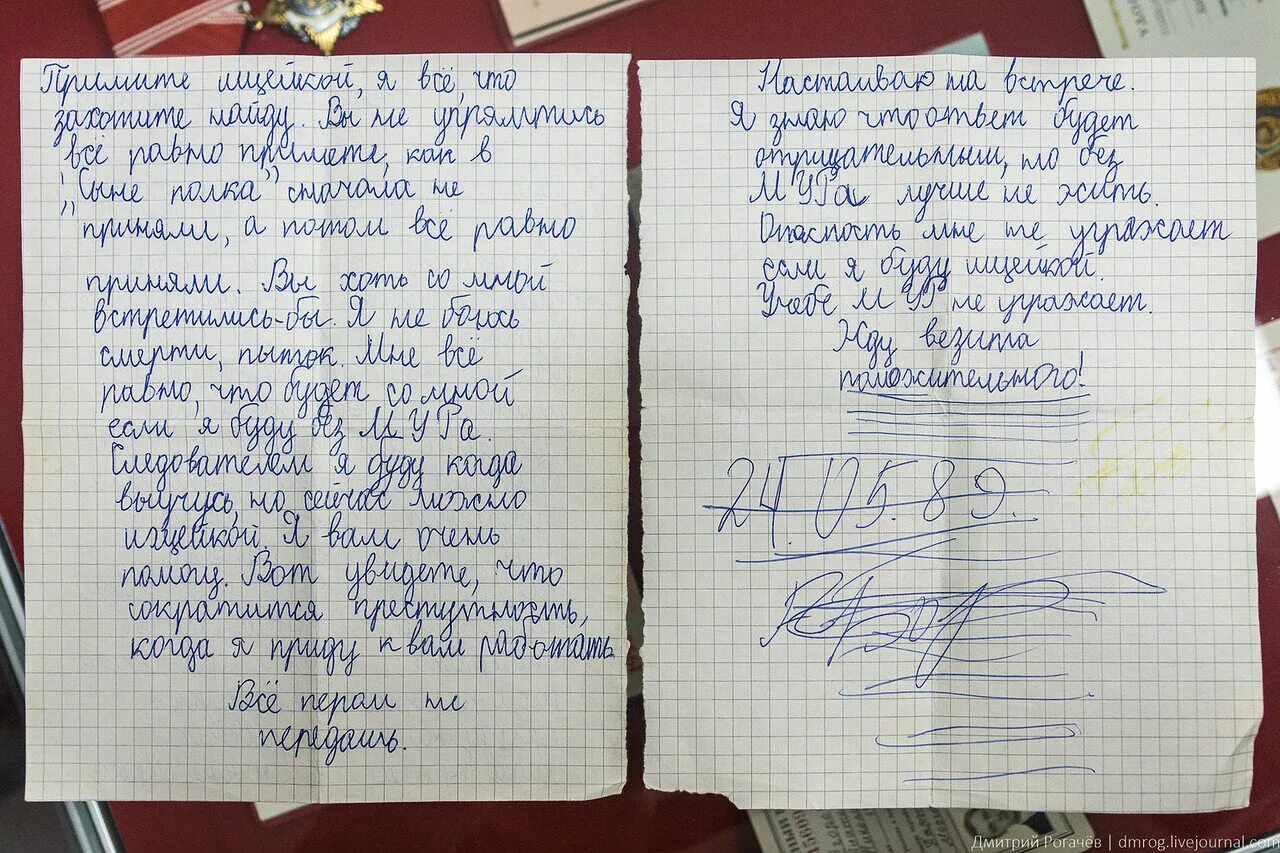 Примите ищейкой, я всё, что
захотите найду. Вы не упрямтись
всё равно примете, как в
"Сыне полка" сначала не
приняли, а потом всё равно
приняли. Вы хоть со мной
встретились-бы. Я не боюсь
смерти, пыток. Мне всё
равно, что будет со мной
если я буду без МУРа.
Следователем я дуду когда
выучусь, но сейчас можно
ищейкой. Я вам очень
помогу. Вот увидете, что
сократится преступность,
когда я приду к вам работать
Всё пером не
передашь.
Настаиваю на встрече.
Я знаю что ответ будет
отрицательный, но без
МУРа лучше не жить.
Опасность мне не угражает
если я буду ищейкой.
Учебе МУР не угражает.
Жду везита
положительного!
24.05.89.
Дмитрий Рогачёв | dmrog.livejournal.com